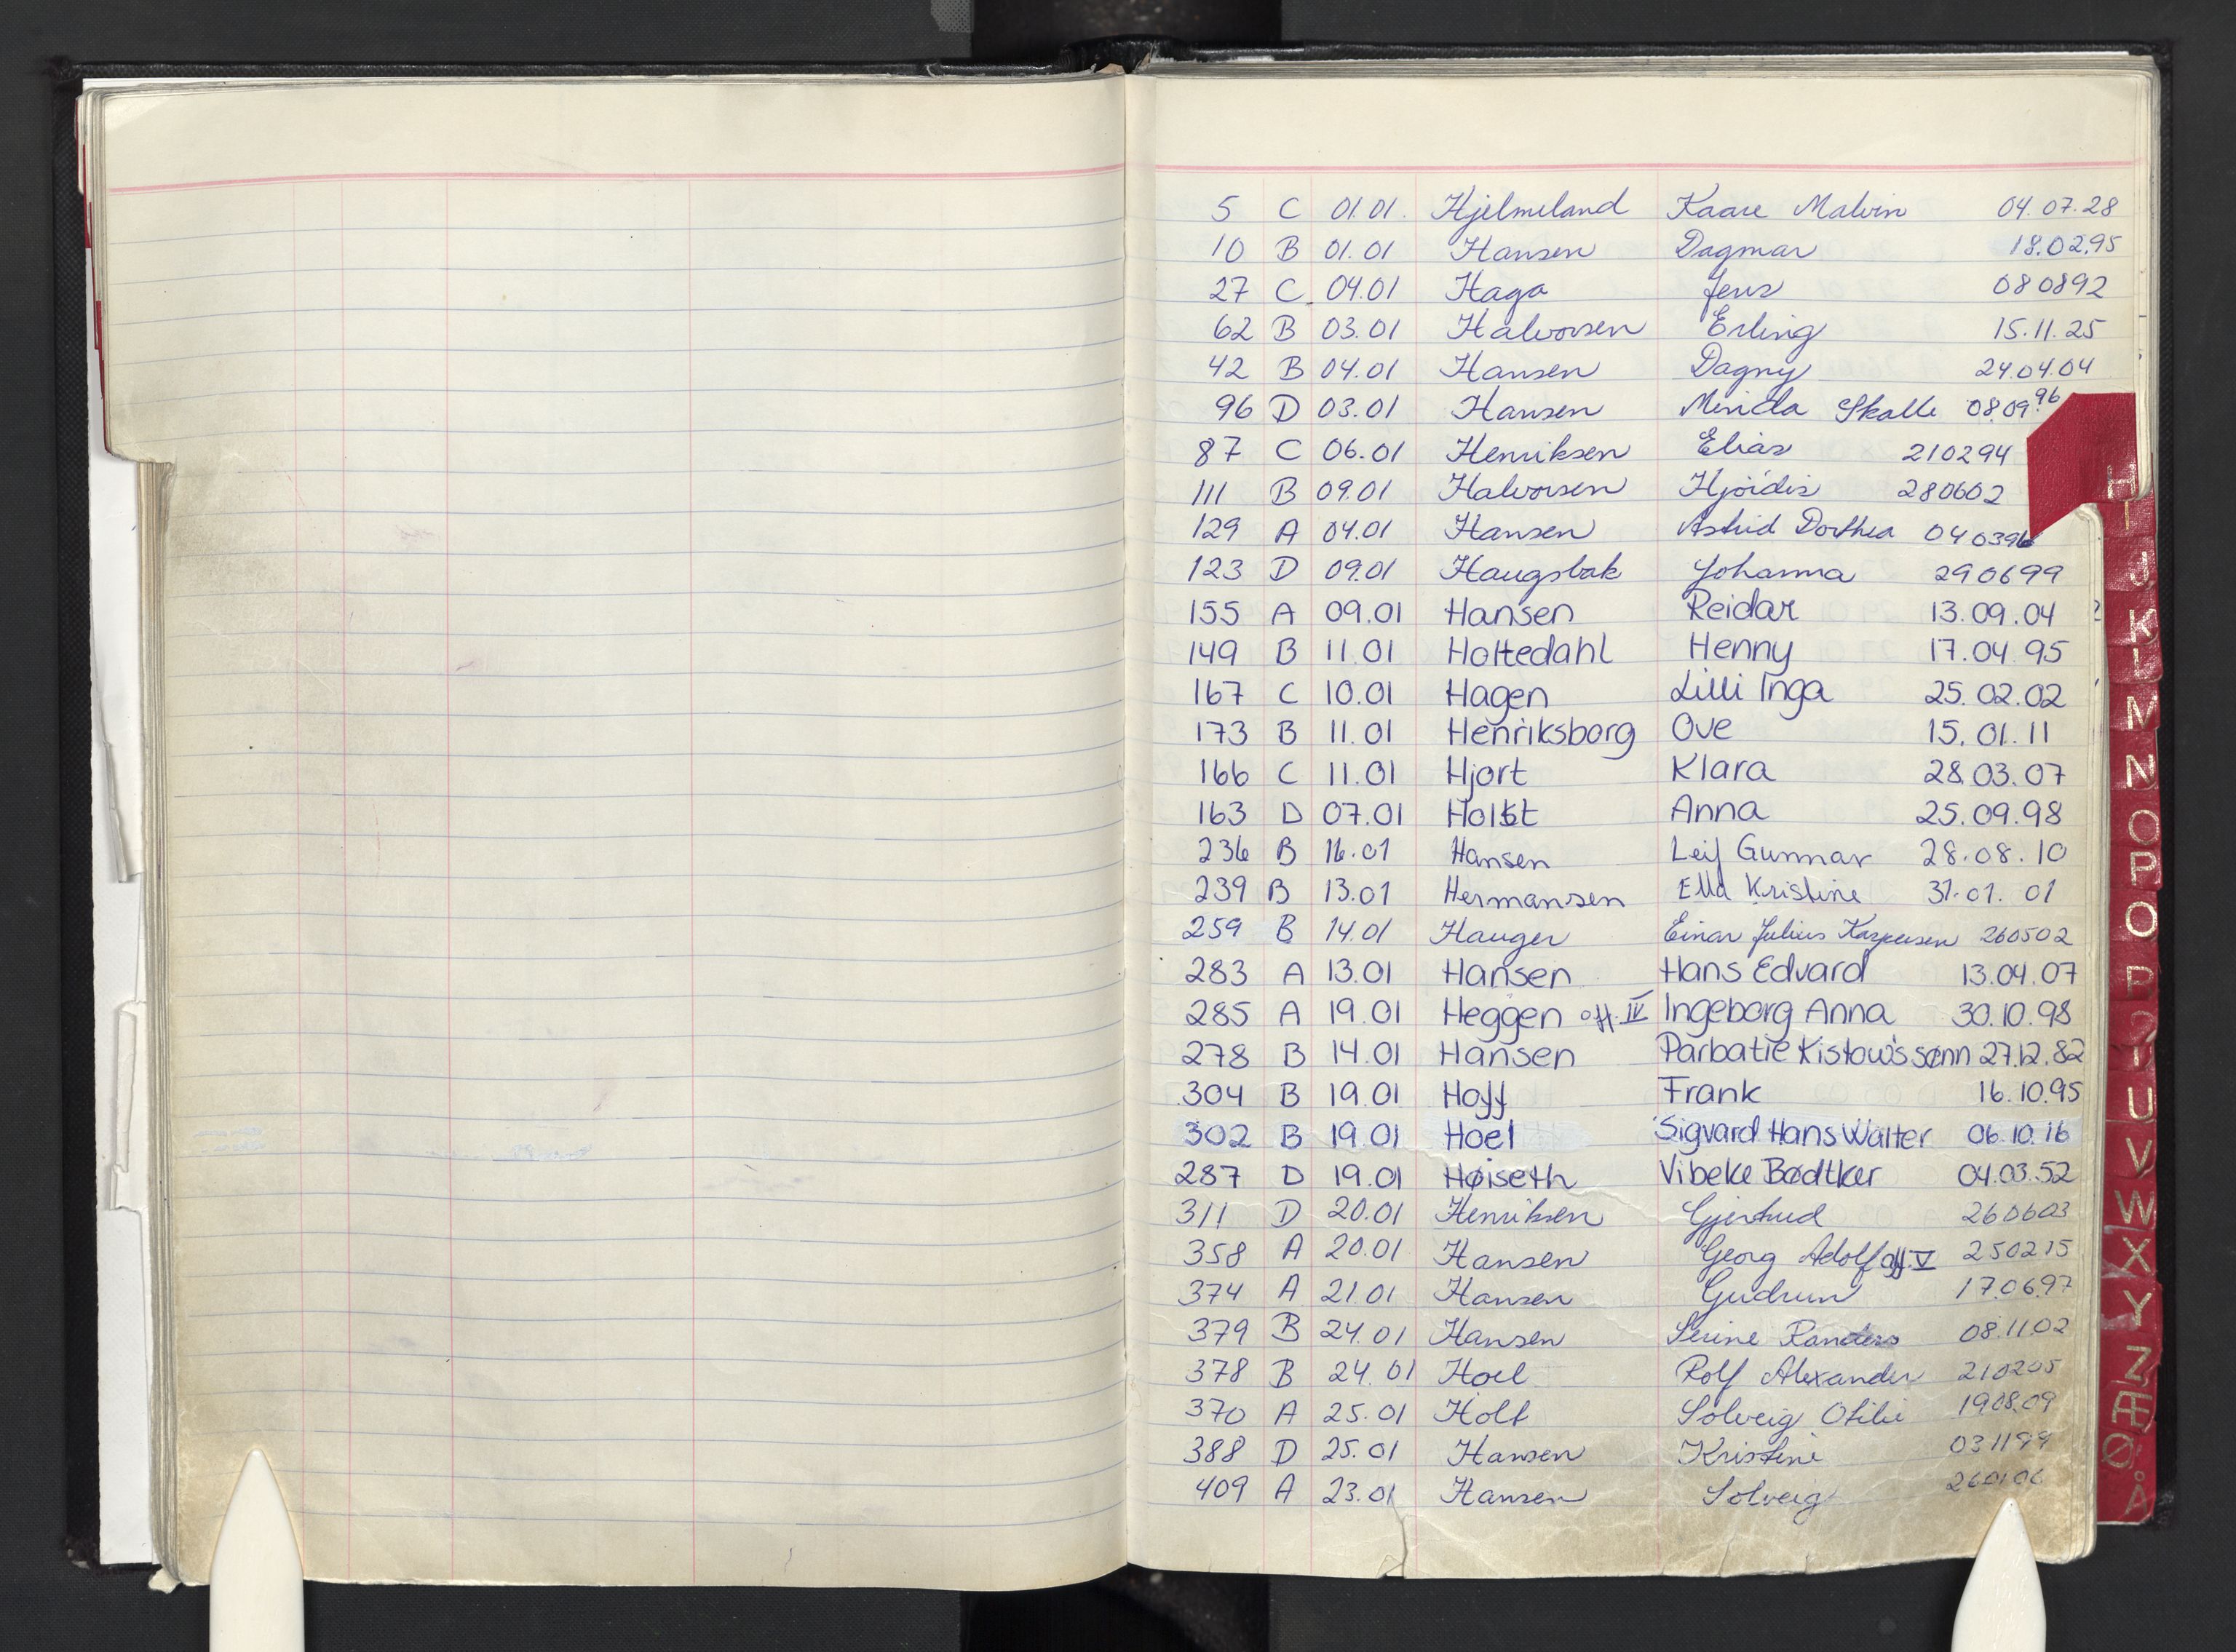 5 C 01.01. Hjelmeland Kaare Malvin 04.07.28
10 B 01.01 Hansen Dagmar 18.02.95
27 C 04.01 Haga Jens 080892
62 B 03.01 Halvorsen Erling 15.11.25
42 B 04.01 Hansen Dagny 24.04.04
96 D 03.01 Hansen Minda Skalle 08.09.96
87 C 06.01 Henriksen Elias 210294
111 B 09.01 Halvorsen Hjördis 280602
129 A 04.01 Hansen Astrid Dorthea 040396
123 D 09.01 Haugsbak Johanna 290699
155 A 09.01 Hansen Reidar 13.09.04
149 B 11.01 Holtedahl Henny 17.04.95
167 C 10.01 Hagen Lilli Inga 25.02.02
173 B 11.01 Henriksborg Ove 15.01.11
166 C 11.01 Hjort Klara 28.03.07
163 D 07.01 Holst Anna 25.09.98
236 B 16.01 Hansen Leif Gunnar 28.08.10
239 B 13.01 Hermansen Ella Kristine 31.01.01
259 B 14.01 Hauger Einar Julius Kaspersen 260502
283 A 13.01 Hansen Hans Edvard 13.04.07
285 A 19.01 Heggen off. IV Ingeborg Anna 30.10.98
278 B 14.01 Hansen Parbatie Kistow's sønn 27.12.82
304 B 19.01 Hoff Frank 16.10.95
302 B 19.01 Hoel Sigvard Hans Walter 06.10.16
287 D 19.01 Høiseth Vibeke Bødtker 04.03.52
311 D 20.01 Henriksen Gjertrud 260603
358 A 20.01 Hansen Georg Adolf off. V 250215
374 A 21.01 Hansen Gudrun 170697
379 B 24.01 Hansen Serine Randers 08.11.02
378 B 24.01 Hoel Rolf Alexander 210205
370 A 25.01 Holt Solveig Otilie 19.08.09
388 D 25.01 Hansen Kristine 031199
409 A 23.01 Hansen Solveig 260106
H
I
J
K
L
M
N
O
P
Q
R
U
V
W
X
Y
Z
Æ
Ø
Å